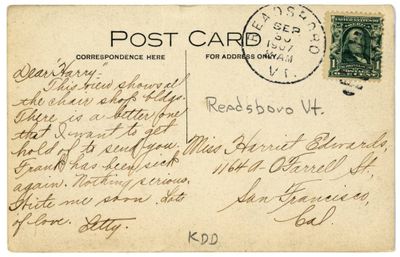 POST CARD
CORRESPONDENCE HERE
FOR ADDRESS ONLY
READSBORO
SEP
30
1907
VT.
Dear "Harry"-
This view shows all
the chair shop bldgs.
There is a better one
that I want to get
hold of to send you.
Frank has been sick
again. Nothing serious.
Write me soon. Lots
of love. Letty.
Readsboro Vt.
Miss Harriet Edwards,
1164A-O'Farrell St.,
San Francisco,
Cal.
KDD